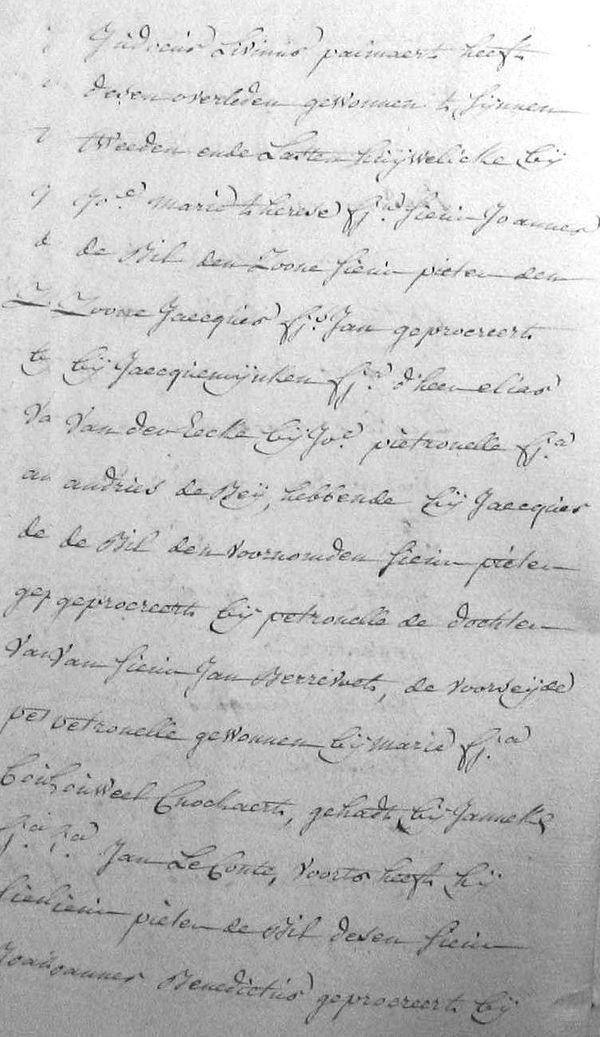 Judocus Livinus paimaert heeft
desen overleden gewonnen t' sijnnen
tweeden ende Lasten huijwelicke bij
Jo.e marie therese f.a Sieur Joannes
de Bil den Zoone Sieur pieter den
Zoone Jacques f.s Jan geprocreert
bij Jacquemijnken f.a d'heer elias
Van der Eecke bij Jo.e pietronelle f.a
andries de Reij, hebbende bij Jacques
de Bil den voornomden Sieur pieter
geprocreert bij petronelle de dochter
Van Sieur Jan Berrevoet, de voorseijde
petronelle gewonnen bij marie f.a
Cnockaert, gehadt bij Janneke
f.a Jan Le Conte, voorts heeft bij
Sieur pieter de Bil desen Sieur
Joannes Benedictus geprocreert bij